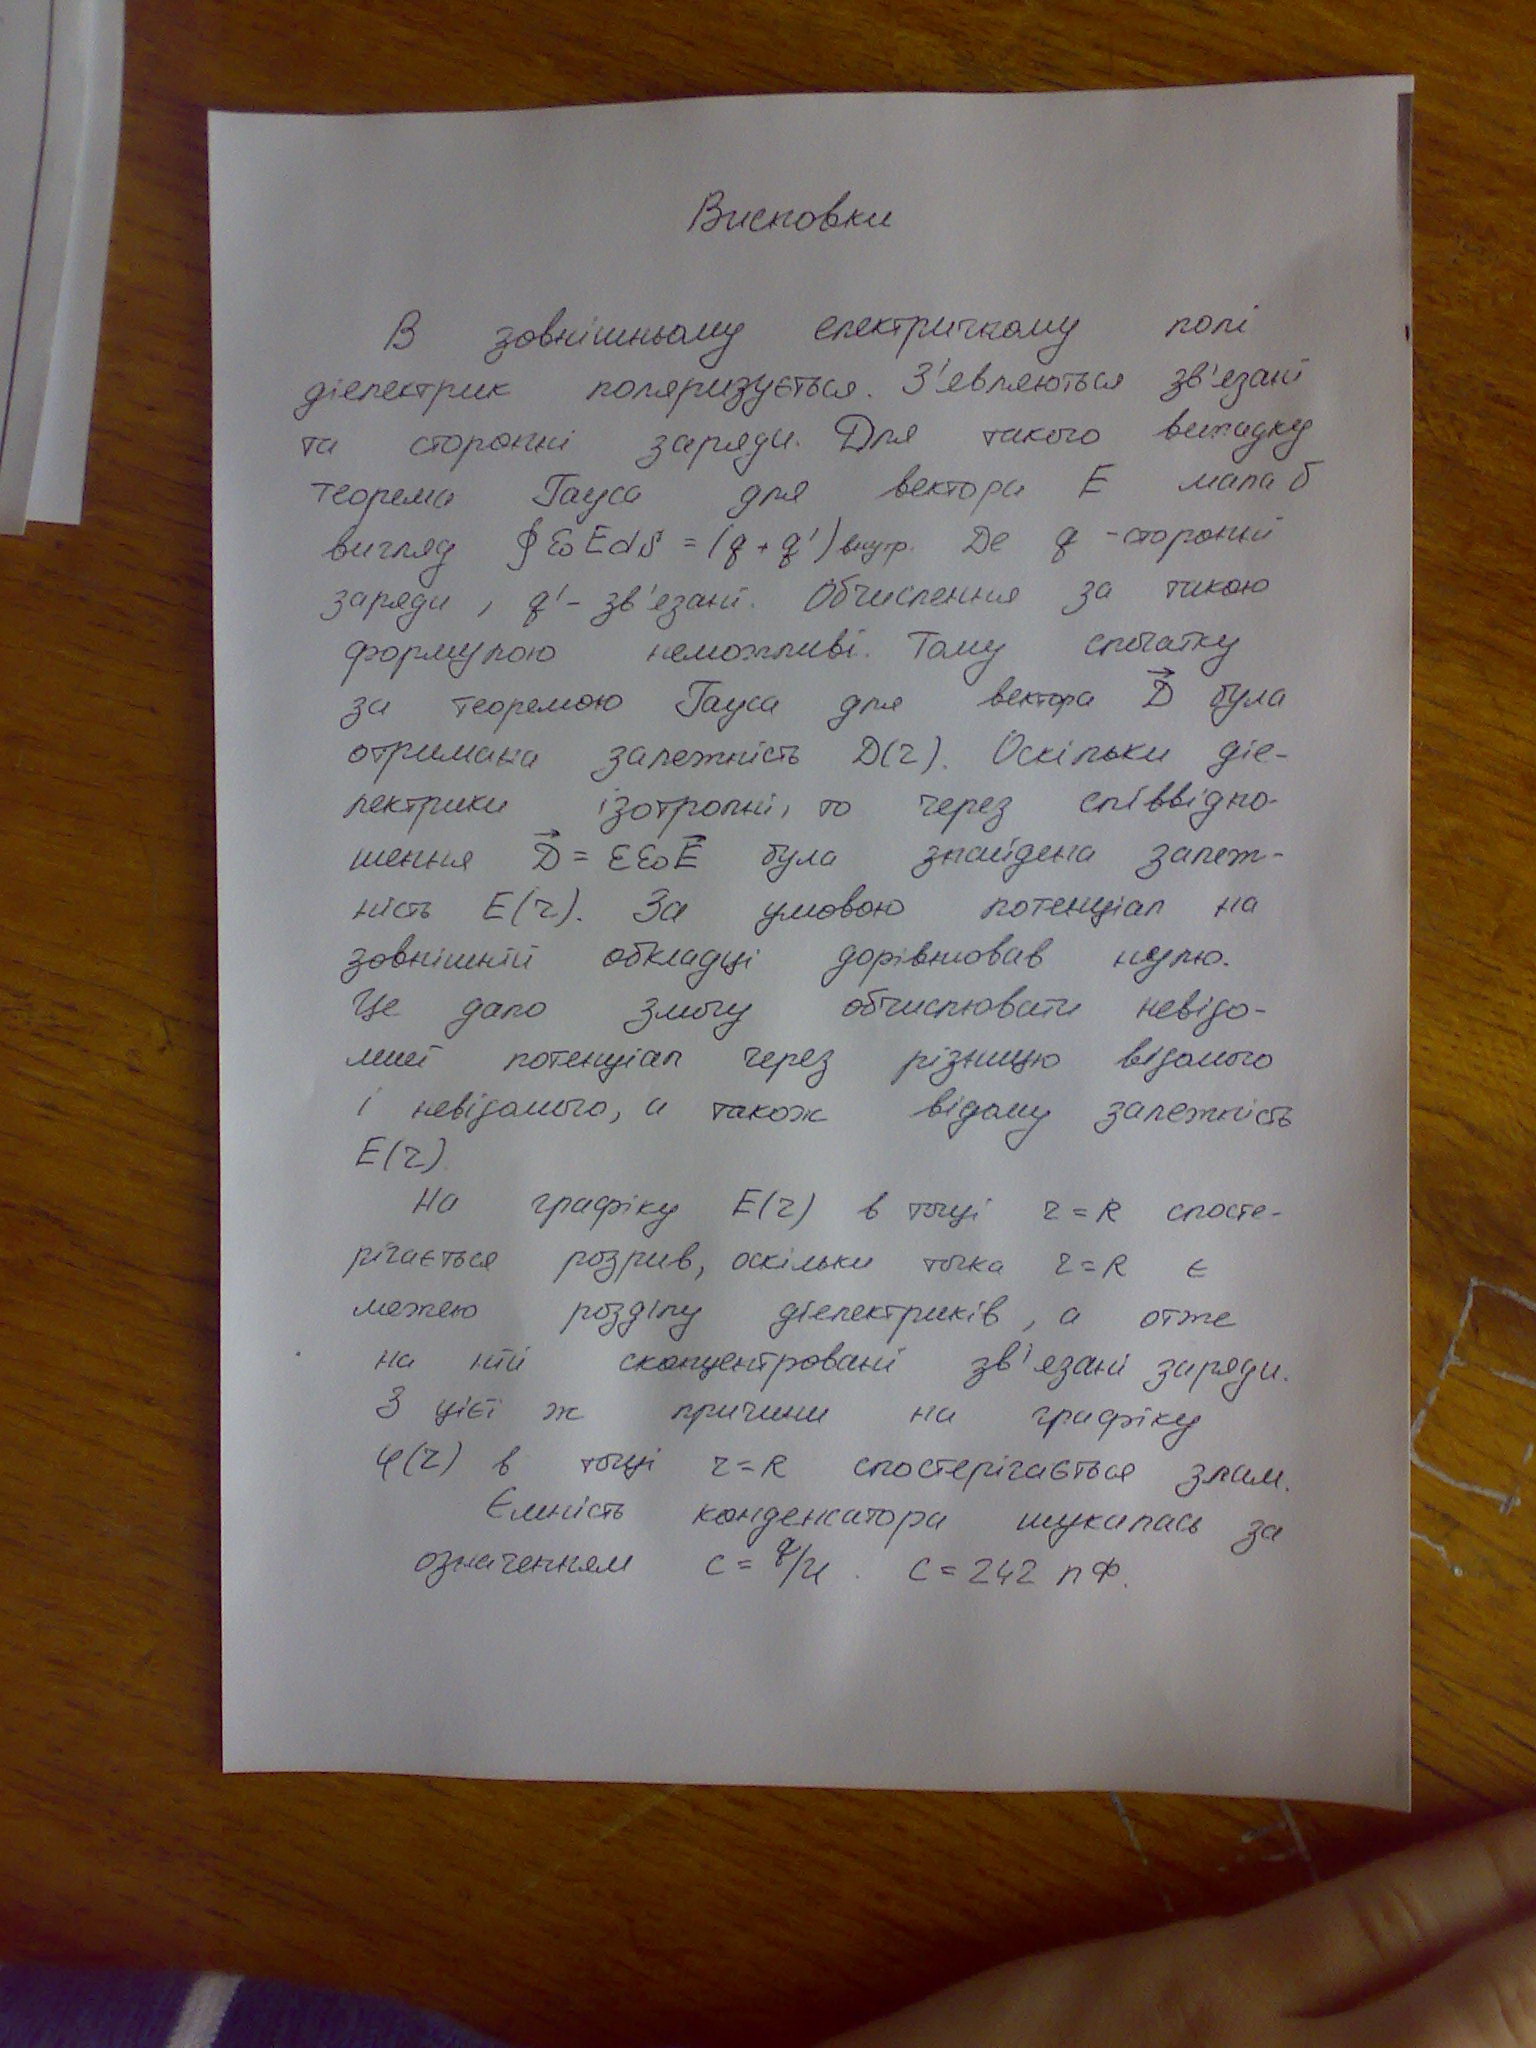 Висновки
В зовнішньому електричкому полі
діелектрик поляризується. З'евляються зв'езані
та сторонні заряди. Для такого випадку
теорема Гауса для вектора E мала б
вигляд ∮ε₀EdS = (q + q')внутр. Де q - сторонні
заряди, q' - зв'езані. Обчислення за такою
формулою неможливі. Тому спочатку
за теоремою Гауса для вектора D⃗ була
отримана залежність D(r). Оскільки діе-
лектрики ізотропні, то через співвідно-
шення D⃗ = εε₀E⃗ була знайдена залеж-
ність E(r). За умовою потенціал на
зовнішній обкладці дорівнював нулю.
Це дало змогу обчислювати невідо-
мий потенціал через різницю відомого
і невідомого, а також відому залежність
E(r).
На графіку E(r) в точці r = R спосте-
рігається розрив, оскільки точка r = R є
межею розділу діелектриків, а отже
на ній сконцентровані зв'язані заряди.
З цієї ж причини на графіку
φ(r) в точці r = R спостерігається злам.
Ємність конденсатора шукалась за
означенням C = q/U. C = 242 пФ.